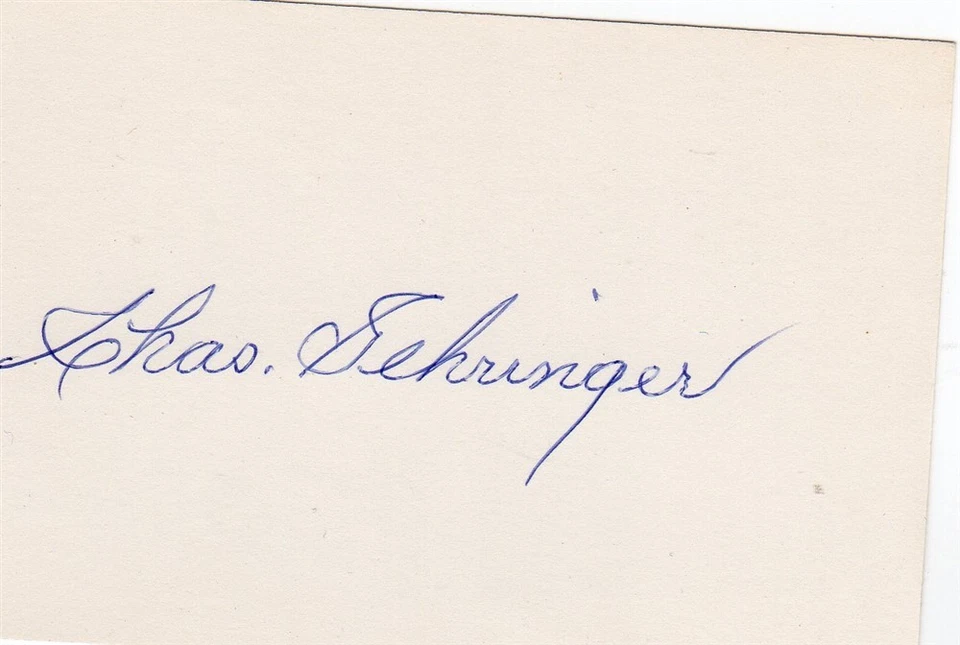 Chas. Gehringer